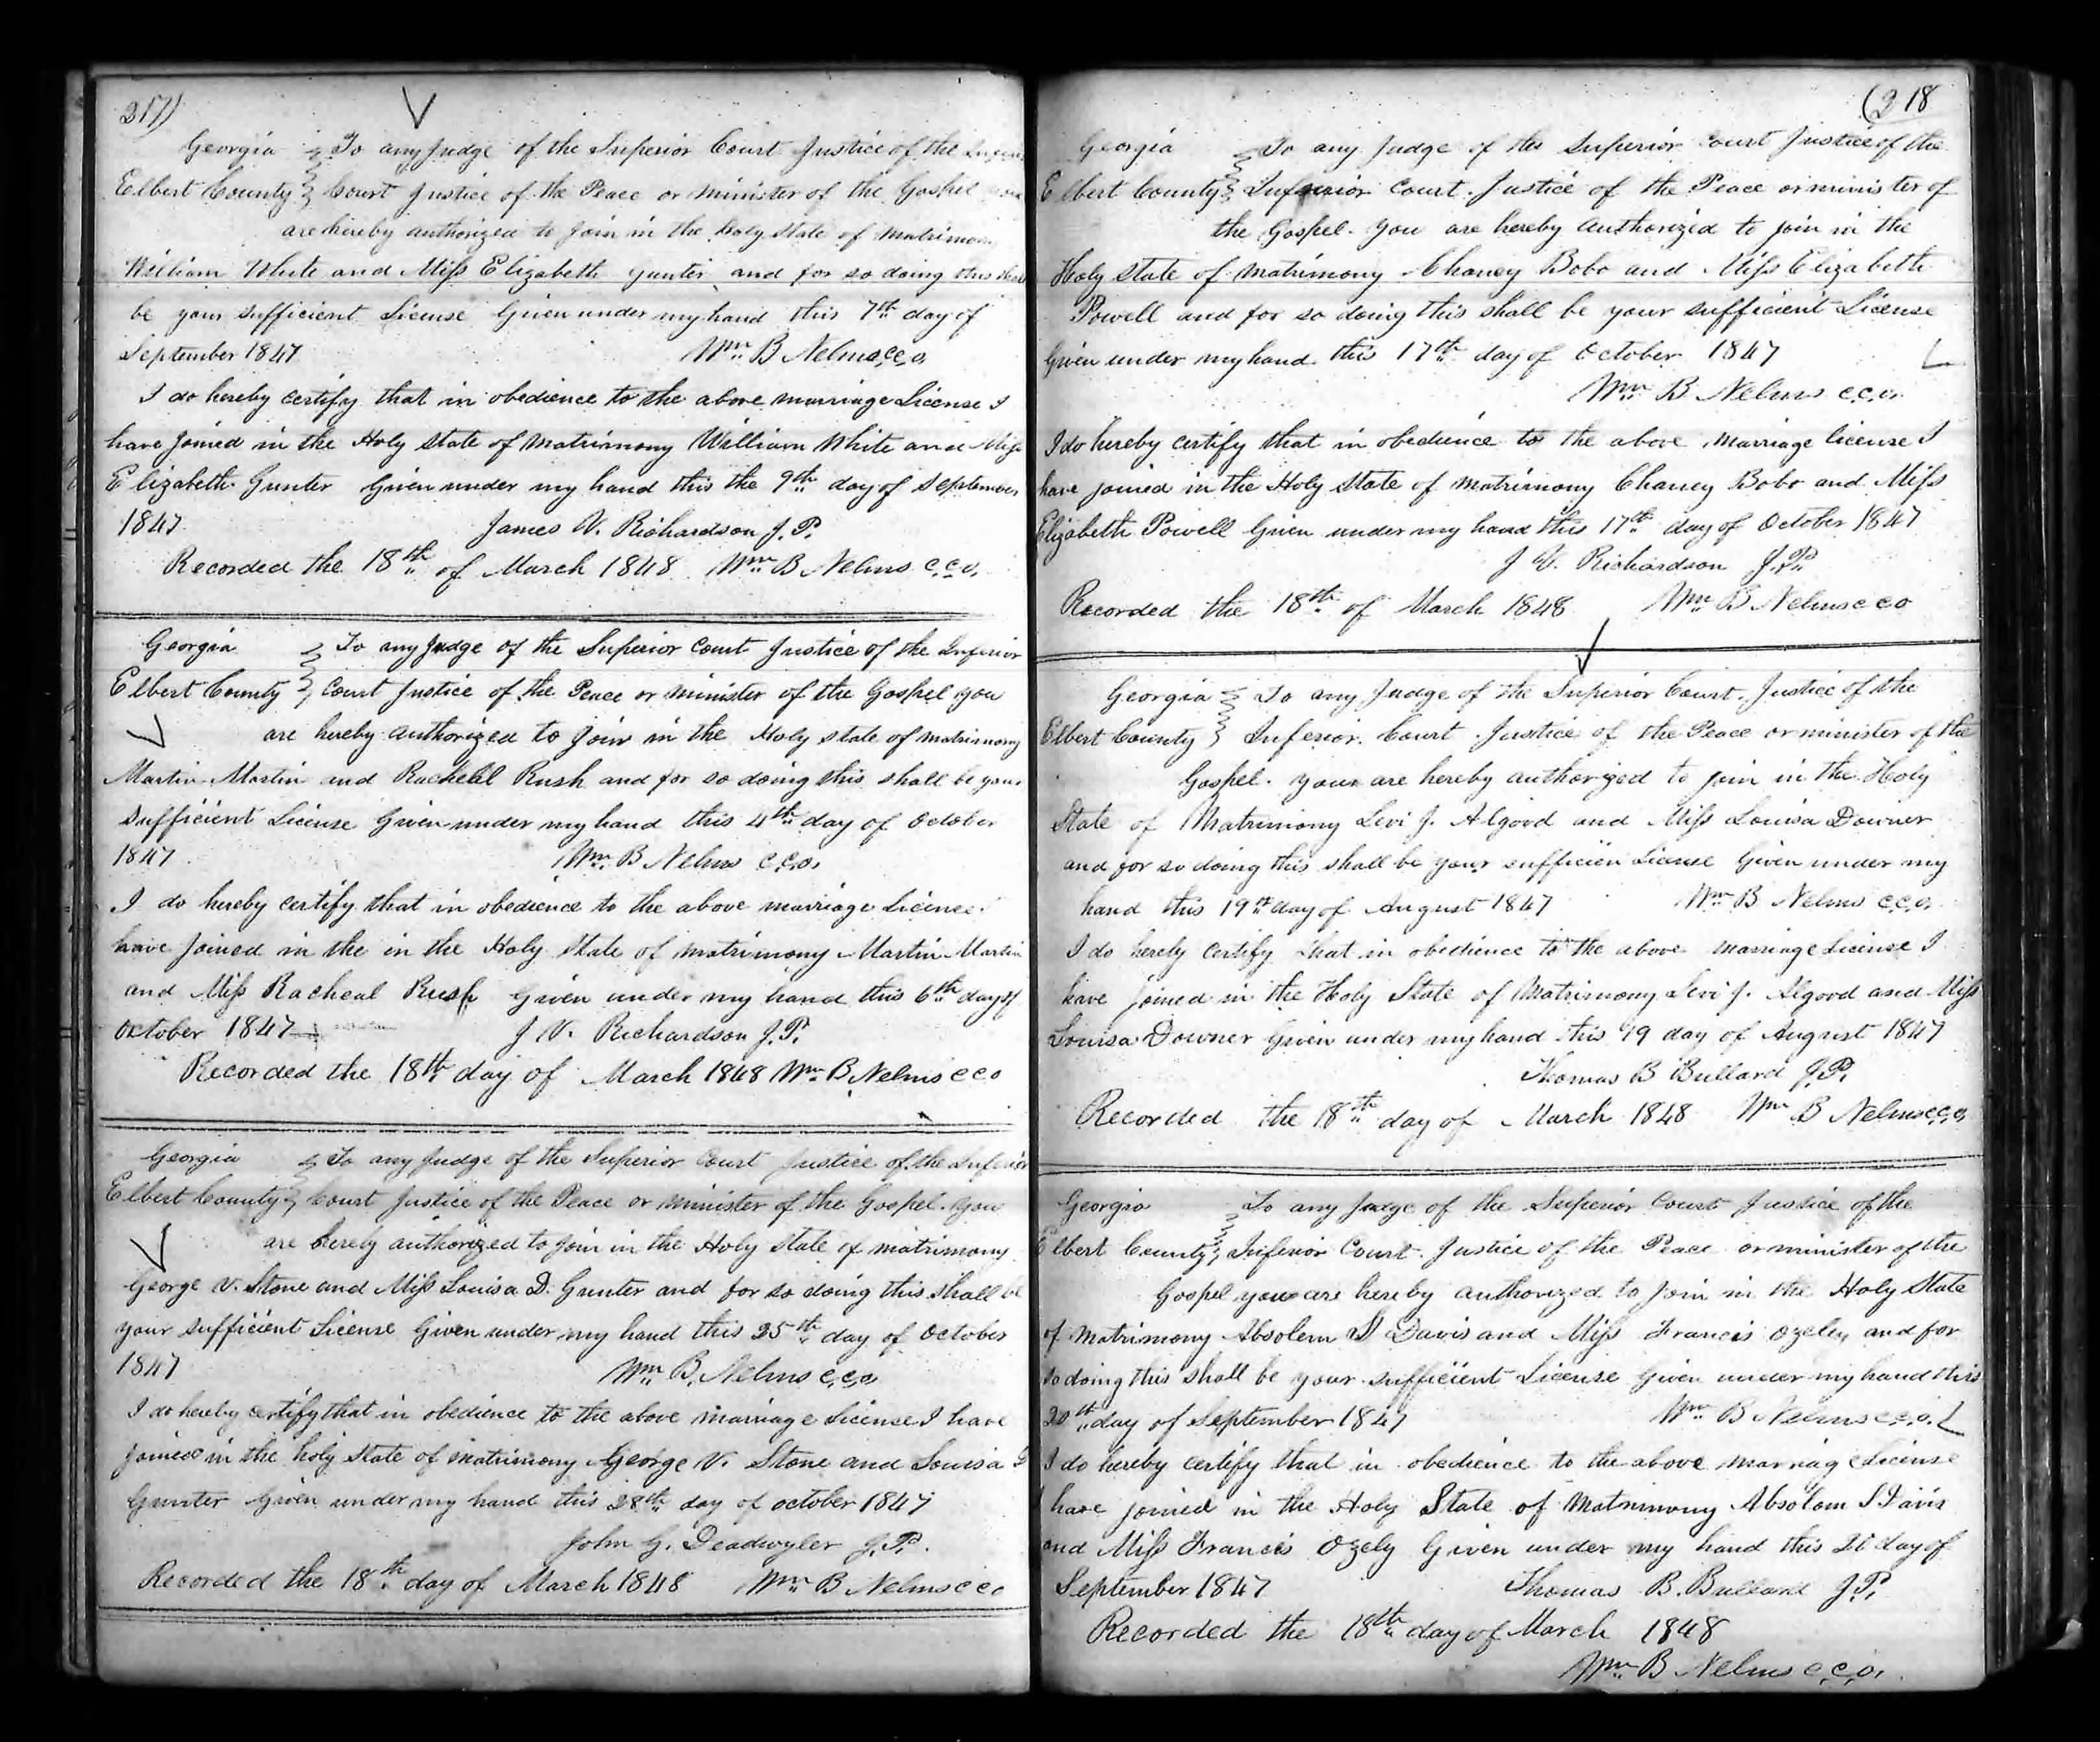 217)
Georgia To any Judge of the Superior Court Justice of the
Elbert County Court Justice of the Peace or minister of the Gospel
are hereby authorized to join in the holy state of Matrimon
William White and Miss Elizabeth gunter and for so doing this shall
be your sufficient License Given under my hand this 7th day of
September 1847 Wm B Nelms c.c.o.
I do hereby certify that in obedience to the above marriage License I
have joined in the Holy state of matrimony William White and Miss
Elizabeth Gunter Given under my hand this the 9th day of September
1847 James V. Richardson J.P.
Recorded the 18th of March 1848 Wm B Nelms c.c.o.
Georgia To any Judge of the Superior Court Justice of the Inferior
Elbert County Court Justice of the Peace or minister of the Gospel you
are hereby authorized to join in the Holy state of matrimony
Martin Martin and Rush and for so doing this shall be your
sufficient License Given under my hand this 4th day of October
1847 Wm B Nelms c.c.o.
I do hereby certify that in obedience to the above marriage License
have joined in the in the Holy State of matrimony Martin Martin
and Miss Racheal Rush Given under my hand this 6th day of
October 1847 J V. Richardson J.P.
Recorded the 18th day of March 1848 Wm B Nelms c c o
Georgia To any Judge of the Superior Court Justice of the Inferior
Elbert County Court Justice of the Peace or minister of the Gospel. you
are hereby authorized to join in the Holy state of matrimony
George V. Stone and Miss Louisa D. Gunter and for so doing this shall be
your sufficient License Given under my hand this 25th day of October
1847 Wm B. Nelms c.c.o.
I do hereby certify that in obedience to the above marriage License I have
joined in the holy state of matrimony George V. Stone and Louisa D
Gunter Given under my hand this 28th day of october 1847
John G. Deadwyler J.P.
Recorded the 18th day of March 1848 Wm B Nelms c c o
(218
Georgia To any Judge of the Superior Court Justice of the
Elbert County Inferior Court. Justice of the Peace or minister of
the Gospel. you are hereby authorized to join in the
Holy state of matrimony Chaney Bobo and Miss Elizabeth
Powell and for so doing this shall be your sufficient License
Given under my hand this 17th day of October 1847
Wm B Nelms c.c.o.
I do hereby certify that in obedience to the above marriage license I
have joined in the Holy state of matrimony Chaney Bobo and Miss
Elizabeth Powell Given under my hand this 17th day of October 1847
J V. Richardson J.P.
Recorded the 18th of March 1848 Wm B Nelms c c o
Georgia To any Judge of the Superior Court. Justice of the
Elbert County Inferior Court Justice of the Peace or minister of the
Gospel. your are hereby authorized to join in the Holy
State of Matrimony Levi J. Algood and Miss Louisa Downer
and for so doing this shall be your sufficien License Given under my
hand this 19th day of August 1847 Wm B Nelms c.c.o.
I do herely certify that in obedience to the above marriage License I
have joined in the Holy State of Matrimony Levi J. Algood and Miss
Louisa Downer Given under my hand this 19 day of August 1847
Thomas B Bullard J.P.
Recorded the 18th day of March 1848 Wm B Nelms c.c.o.
Georgia To any Judge of the Superior Court Justice of the
Elbert County Inferior Court. Justice of the Peace or minister of the
Gospel you are hereby authorized to join in the Holy State
of matrimony Absolem S Davis and Miss Francis Ozeley and for
so doing this shall be your sufficient License Given under my hand this
20th day of September 1847 Wm B Nelms c.c.o.
I do hereby certify that in obedience to the above marriage License
I have joined in the Holy State of Matrimony Absolom S Davis
and Miss Francis Ozely Given under my hand this day of
September 1847 Thomas B. Bullard J.P.
Recorded the 18th day of March 1848
Wm B Nelms c.c.o.